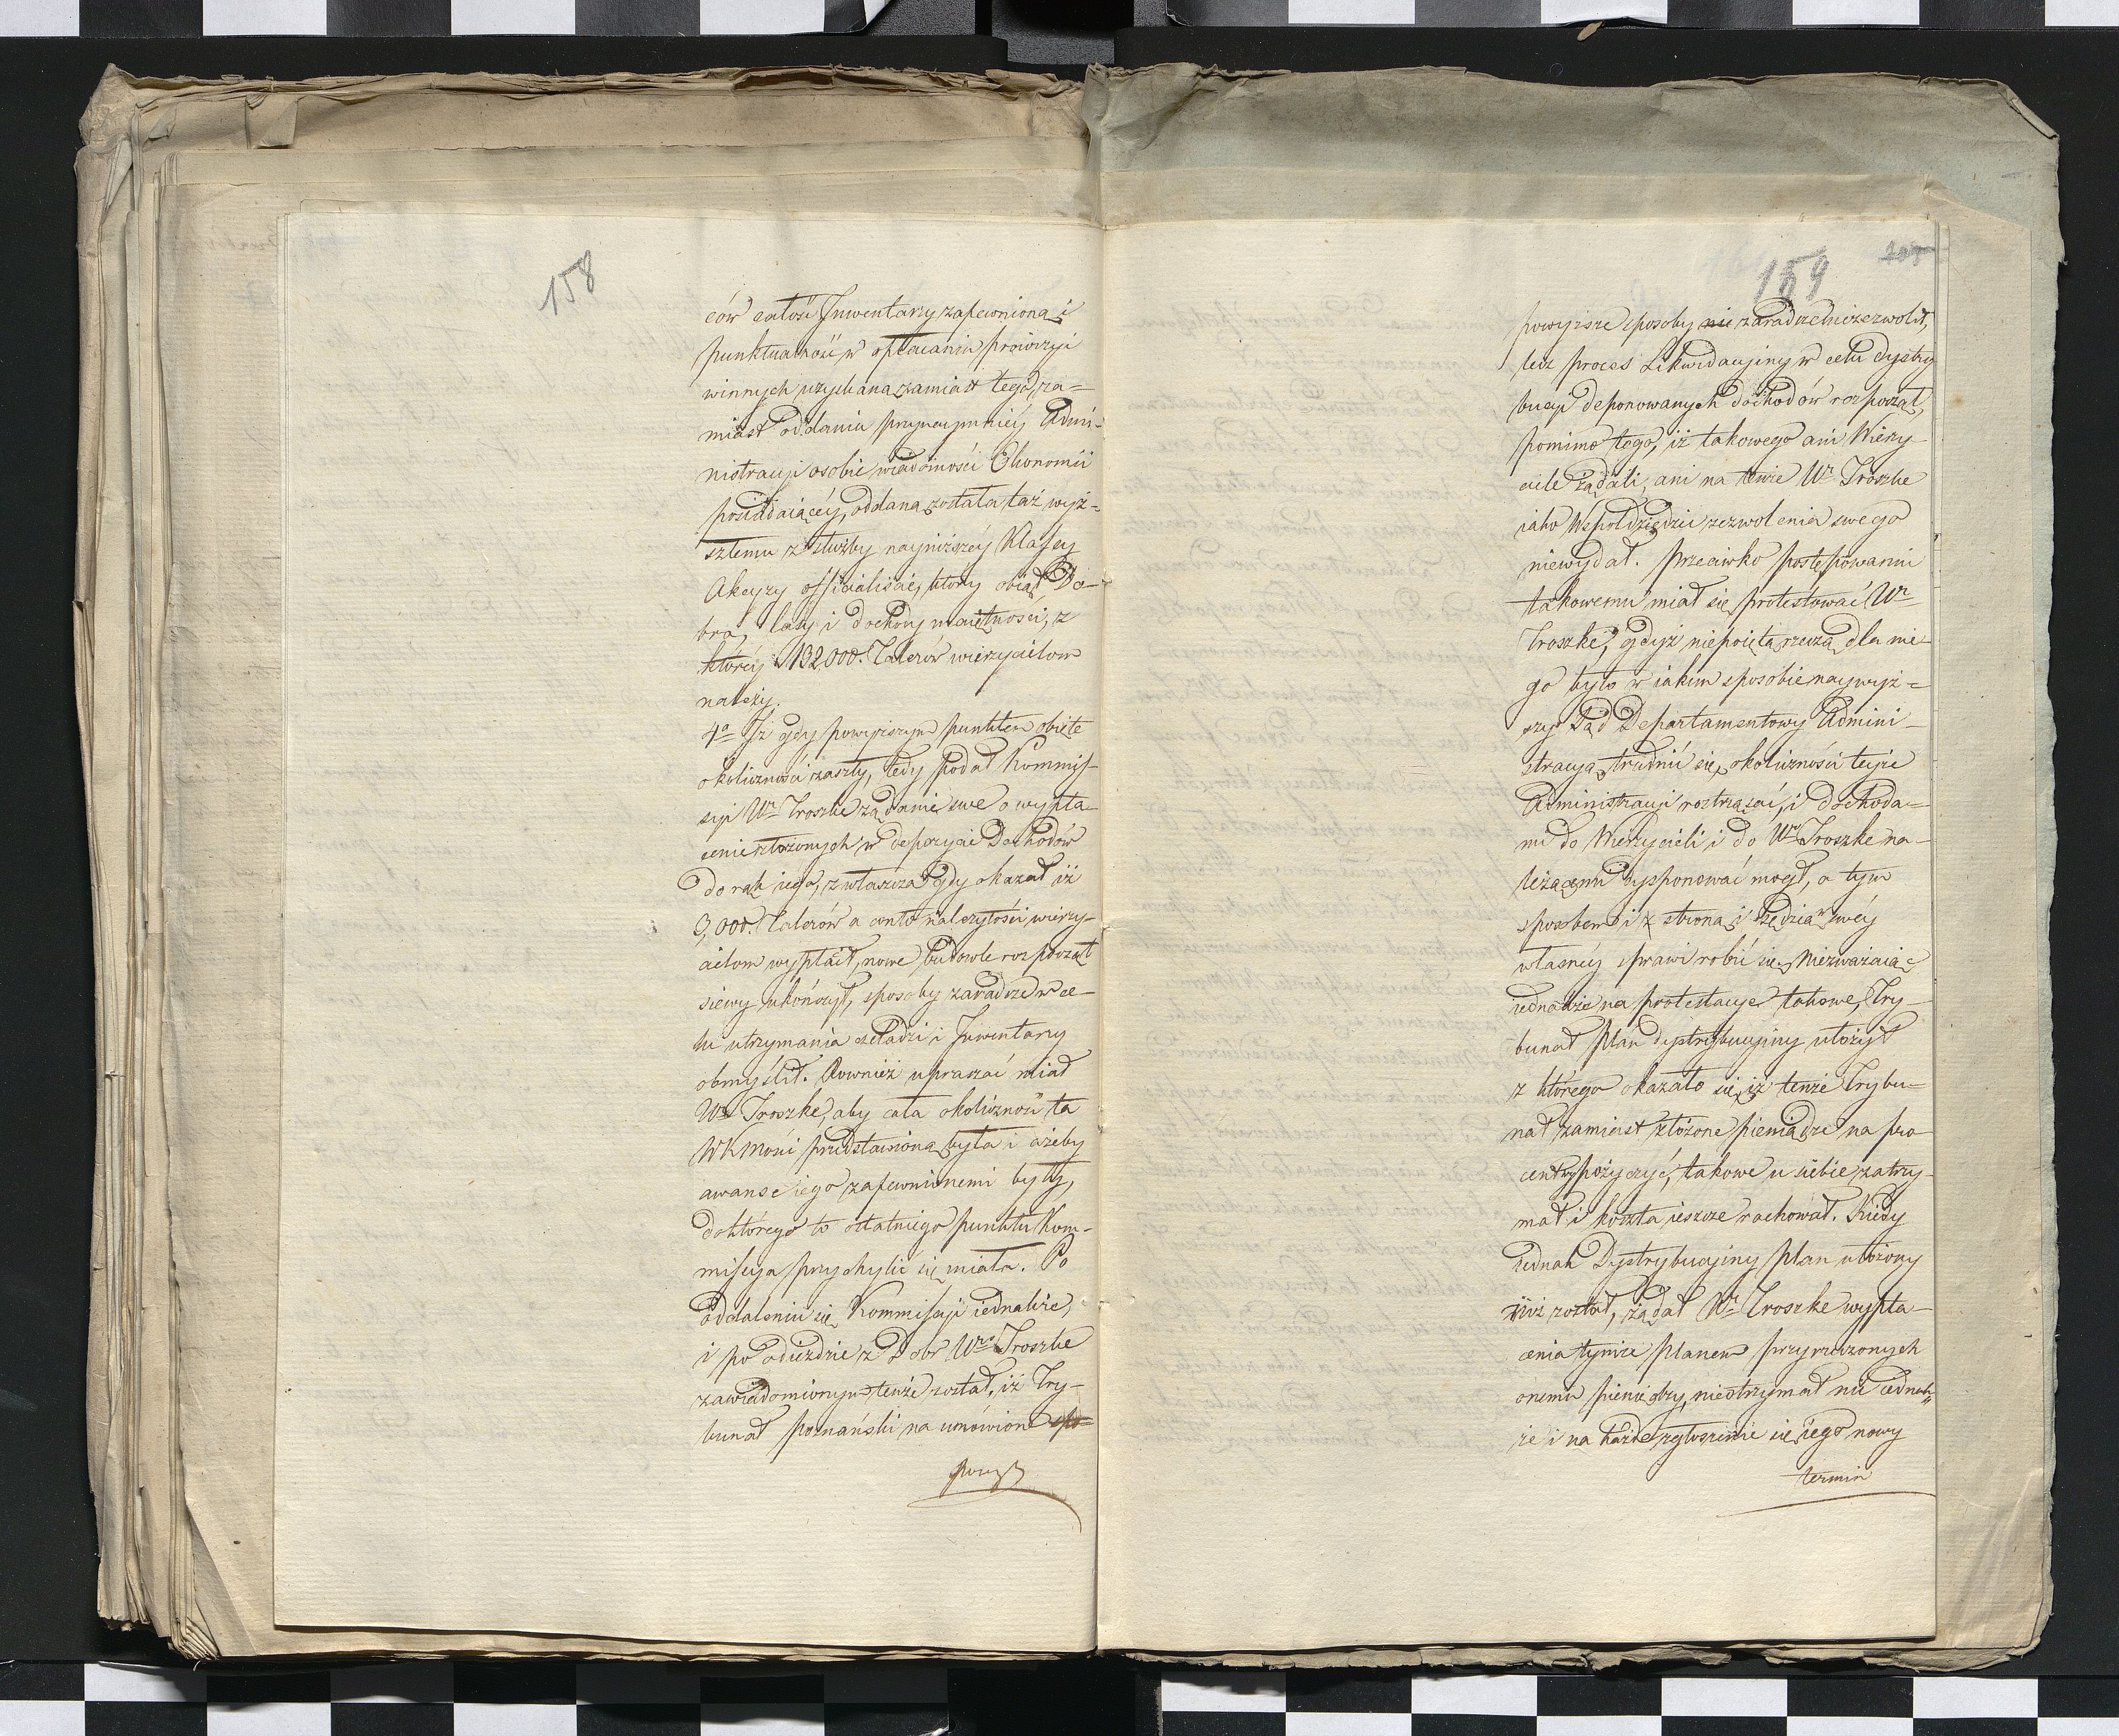 158
ców całość Inwentarzy zapewniona i
punktualność w opłacaniu prowizyi
winnych uzyskana zamiast tego, za-
miast oddania przynaymniéy Admi-
nistracyi osobie wiadomości Ekonomii
posiadaiącéy, oddana została taż wyż-
szłemu z służby nayniższéy Klassy
Akcyzy officialiście, ktory obiął Do-
bra, lasy i dochody maiętności, z
któréy 132,000. Talerów wierzycielom
należy.
4o Iż gdy powyższym punktem obięte
okoliczności zaszły, tedy podał Kommis-
syi Wr Troszke żądanie swe o wypła-
cenie złożonych w depozycie Dochodów
do rąk iego, zwłaszcza gdy okazał iż
3,000. Talerów a conto należytości wierzy-
cielom wypłacił, nowe budowle rozpoczął
siewy ukończył, sposoby zaradcze w ce-
lu utrzymania czeladzi i Inwentarzy
obmyślił. Rownież upraszać miał
Wr Troszke, aby cała okoliczność ta
WKMości przedstawiona była i ażeby
awanse iego zapewnionemi były,
do którego to ostatniego punktu Kom-
missya przychylić się miała. Po
oddaleniu się Kommissyi iednakże,
i po odiezdzie z Dobr Wgo Troszke
zawiadomionym tenże został, iż Try-
bunał poznański na umówione spo-
powyż
159
powyższe sposoby nie zaradzcze niezezwolił,
lecz proces Likwidacyiny w celu dystry
bucyi deponowanych dochodów rozpoczął,
pomimo tego, iż takowego ani Wierzy
ciele żądali, ani na tenże Wr Troszke
iako Wspoldziedzic zezwolenia swego
niewydał. Przeciwko postępowaniu
takowemu miał się protestować Wr
Troszke, gdyż niepoiętą rzeczą dla nie
go było w iakim sposobie naywyż-
szy Sąd Departamentowy Admini-
stracyą trudnić się, okoliczności teyże
Administracyi roztrząsać, i dochoda-
mi do Wierzycieli i do Wgo Troszke na-
leżącemi dysponować mógł, a tym
sposobem i z stroną i Sędzią w swéy
własnéy sprawi robić się. Niezważaiąc
iednakże na protestacye takowe, Try-
bunał plan dystrybucyiny ułożył
z którego okazało się, iż tenże Trybu-
nał zamiast złożone pieniądze na pro
centy pożyczyć, takowe u siebie zatrzy-
mał i koszta ieszcze rachował. Kiedy
iednak Dystrybucyiny plan ułożony
iuż został, żądał Wr Troszke wypła-
cenia tymże planem przyrzeczonych
onemu pieniędzy, nieotrzymał nic iednak
że i na każde zgłoszenie się iego nowy
termin